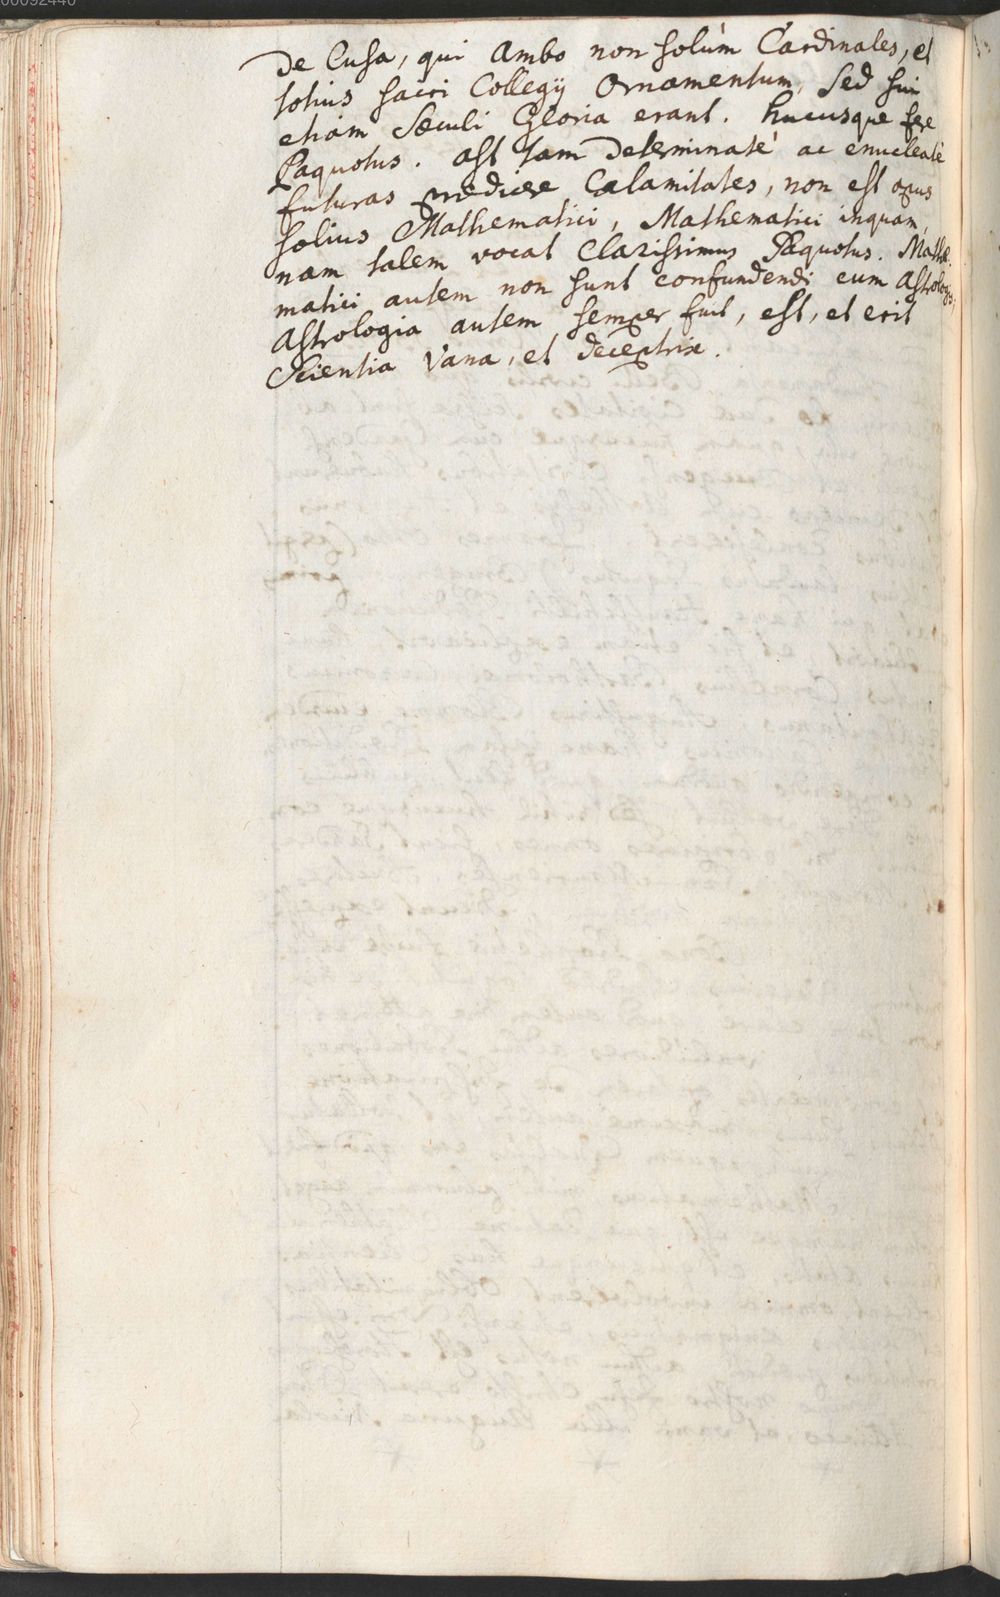 00092440
De Cusa, qui Ambo non solùm Cardinales, et
totius sacri Collegij Ornamentum, Sed sui
etiam Sæculi Gloria erant. hucusque fere
Paquotus. ast tam Determinatè ac enucleatè
futuras prædicere Calamitates, non est opus
solius Mathematici, Mathematici inquam,
nam talem vocat Clarissimus Paquotus. Mathe-
matici autem non sunt confundendi cum Astrologis,
Astrologia autem semper fuit, est, et erit
Scientia Vana, et deceptrix.